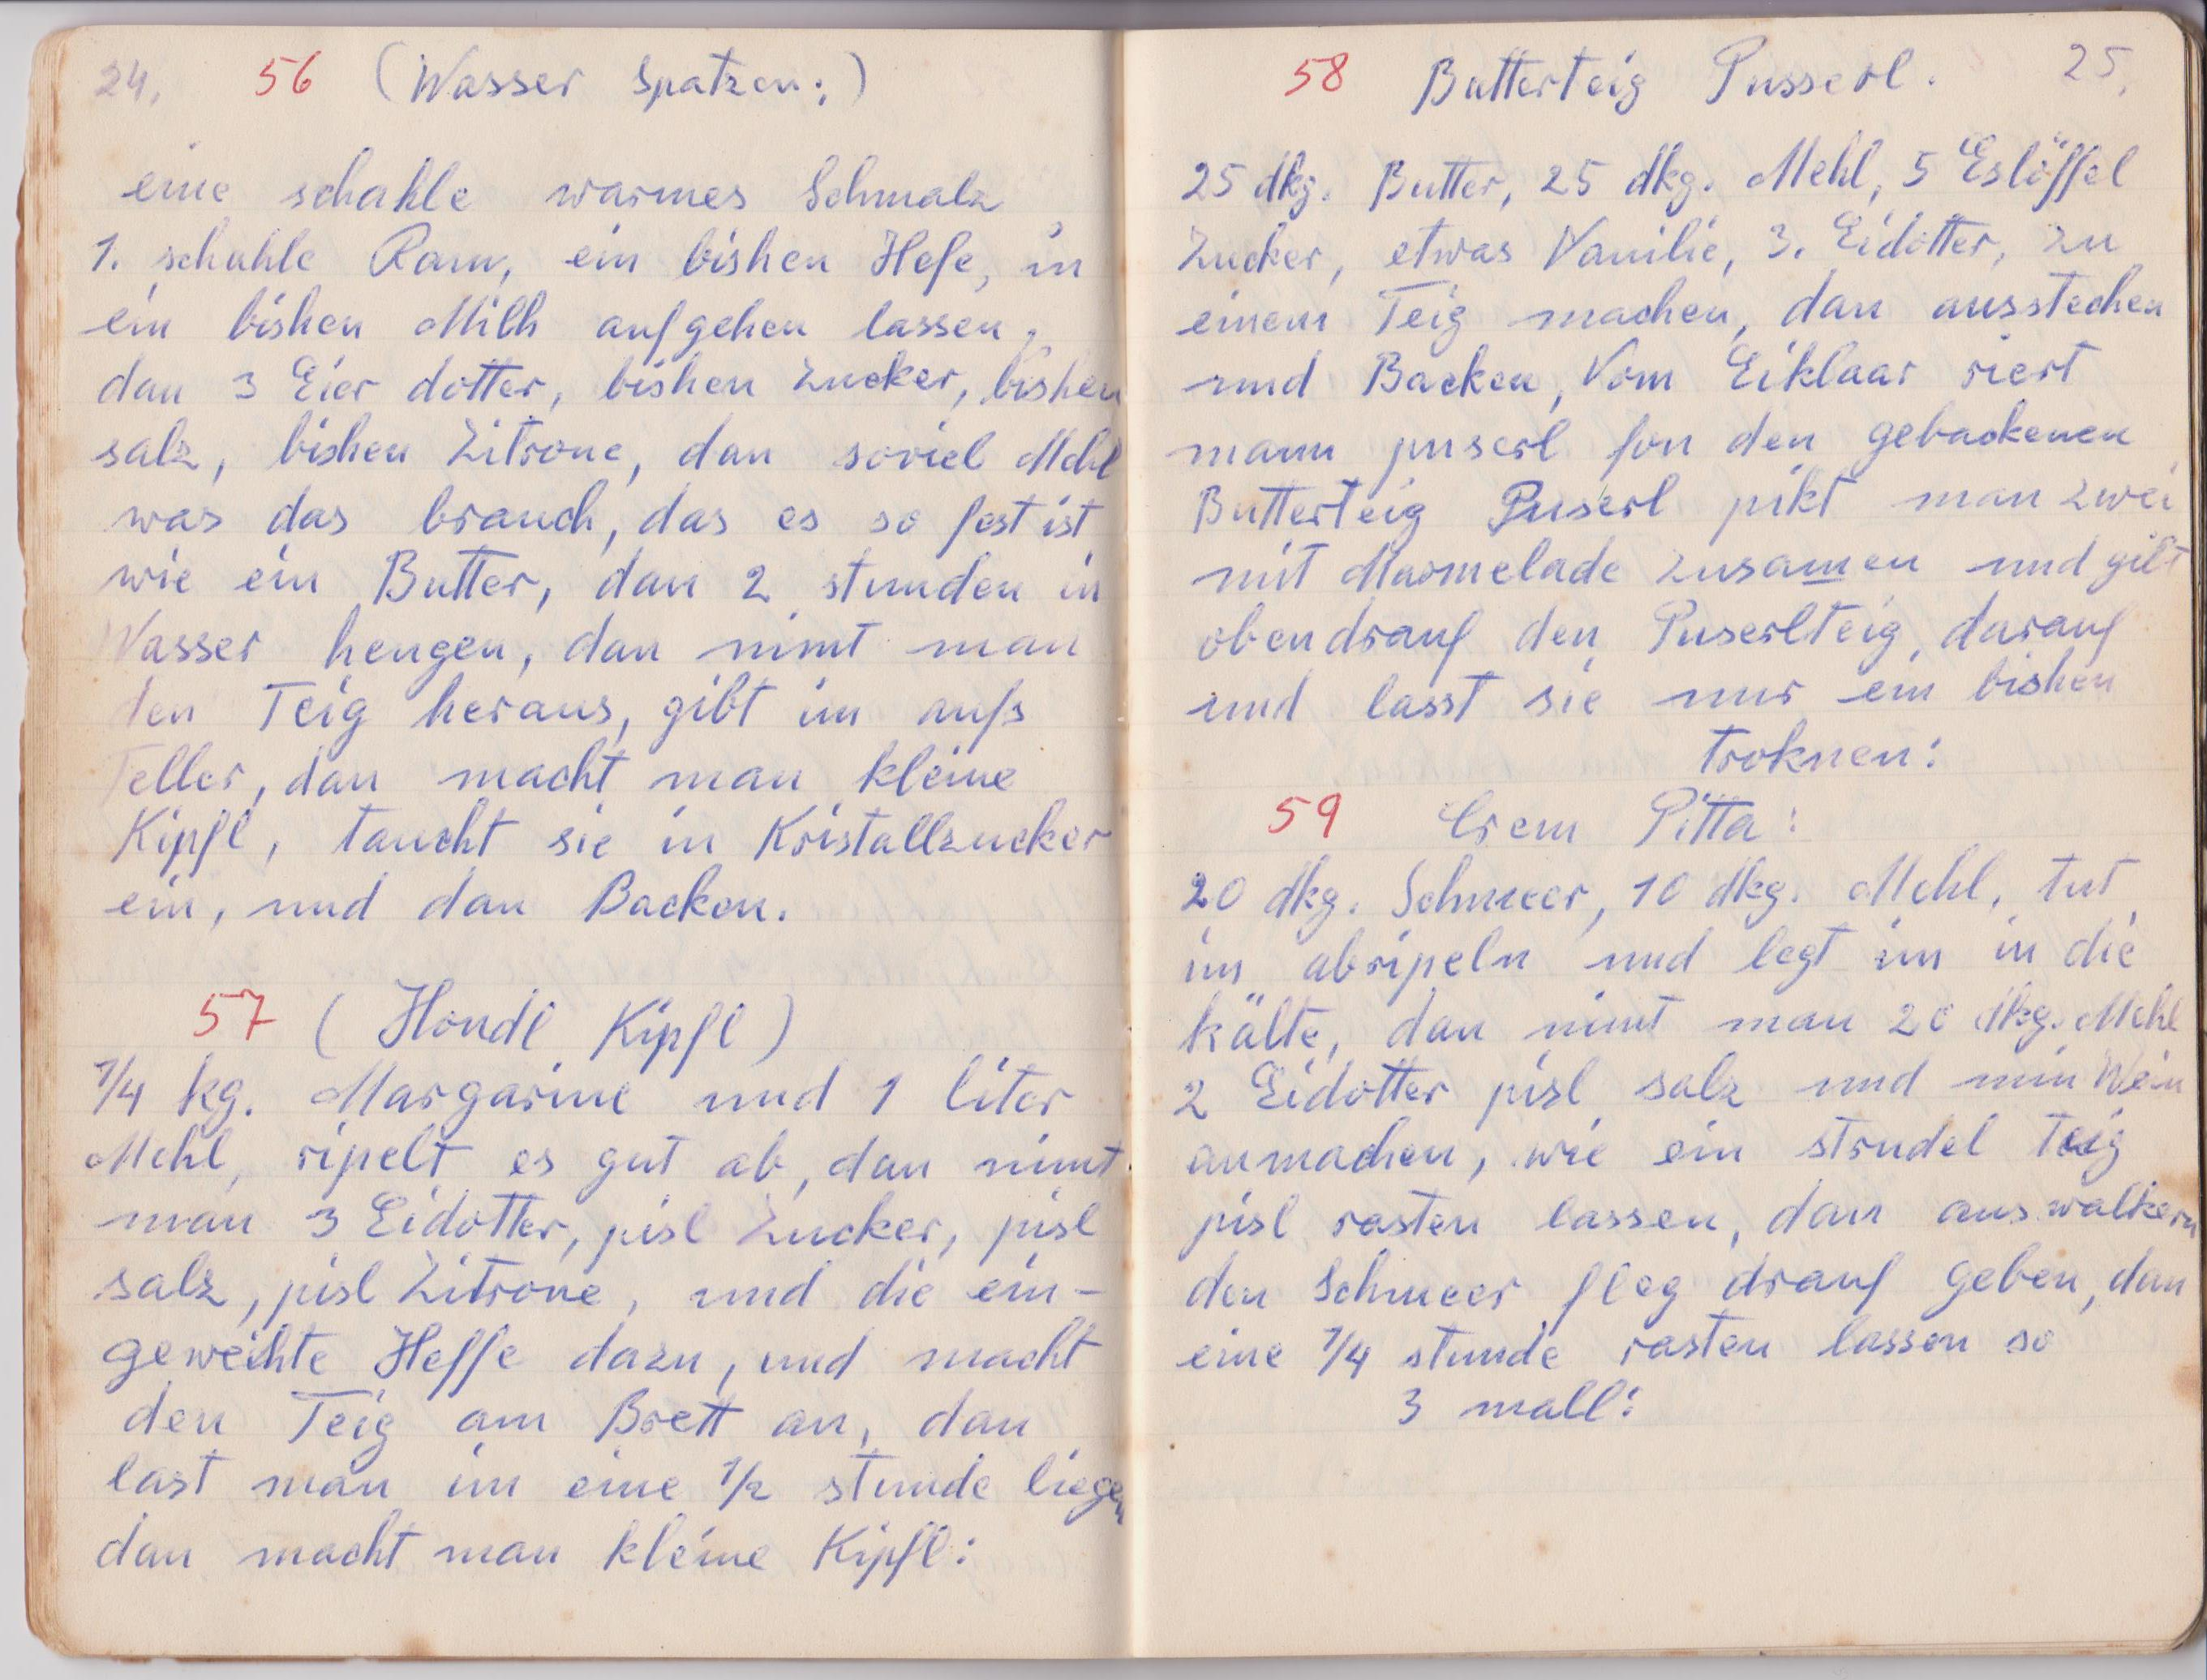 24. 56 (Wasser Spatzen:)
eine schahle warmes Schmalz
1. schahle Ram, ein bishen Hefe, in
ein bishen Milh aufgehen lassen,
dan 3 Eier dotter, bishen Zucker, bishen
salz, bishen Zitrone, dan soviel Mehl
was das brauch, das es so fest ist
wie ein Butter, dan 2 stunden in
Wasser hengen, dan nimt man
den Teig heraus, gibt im aufs
Teller, dan macht man kleine
Kipfl, taucht sie in Kristallzucker
ein, und dan Backen.
57 (Hondl Kipfl)
1/4 kg. Margarine und 1 liter
Mehl, ripelt es gut ab, dan nimt
man 3 Eidotter, pisl Zucker, pisl
salz, pisl Zitrone, und die ein-
geweihte Heffe dazu, und macht
den Teig am Brett an, dan
last man im eine 1/2 stunde liegen
dan macht man kleine Kipfl:
58 Butterteig Pusserl. 25.
25 dkg. Butter, 25 dkg. Mehl, 5 Eslöffel
Zucker, etwas Vanilie, 3. Eidotter, zu
einem Teig machen, dan ausstechen
und Backen, Vom Eiklaar riert
mann puserl fon den gebackenen
Butterteig Puserl pikt man zwei
mit Marmelade zusamen und gibt
obendrauf den Puserlteig, darauf
und lasst sie nur ein bishen
troknen:
59 Crem Pitta:
20 dkg. Schmeer, 10 dkg. Mehl, tut
im abripeln und legt im in die
kälte, dan nimt man 20 dkg. Mehl
2 Eidotter pisl salz und min Wein
anmachen, wie ein strudel teig
pisl rasten lassen, dan auswalkern
den Schmeer fleg drauf geben, dan
eine 1/4 stunde rasten lassen so
3 mall: